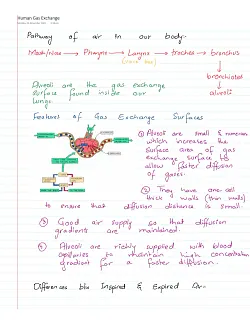 Human Gas Exchange
Pathway of air in our body:
Mouth/nose → Pharynx → Larynx → trachea → bronchus
(voice box)
↓
bronchioles
↓
alveoli
Alveoli are the gas exchange
surface found inside our
lungs.
Features of Gas Exchange Surfaces
① Alveoli are small & numerous
which increases the
surface area of gas
exchange surface to
allow faster diffusion
of gases.
② They have one-cell
thick walls (thin walls)
to ensure that diffusion distance is small.
③ Good air supply so that diffusion
gradients are maintained.
④ Alveoli are richly supplied with blood
capillaries to maintain high concentration
gradient for a faster diffusion.
Differences b/w Inspired & Expired Air: